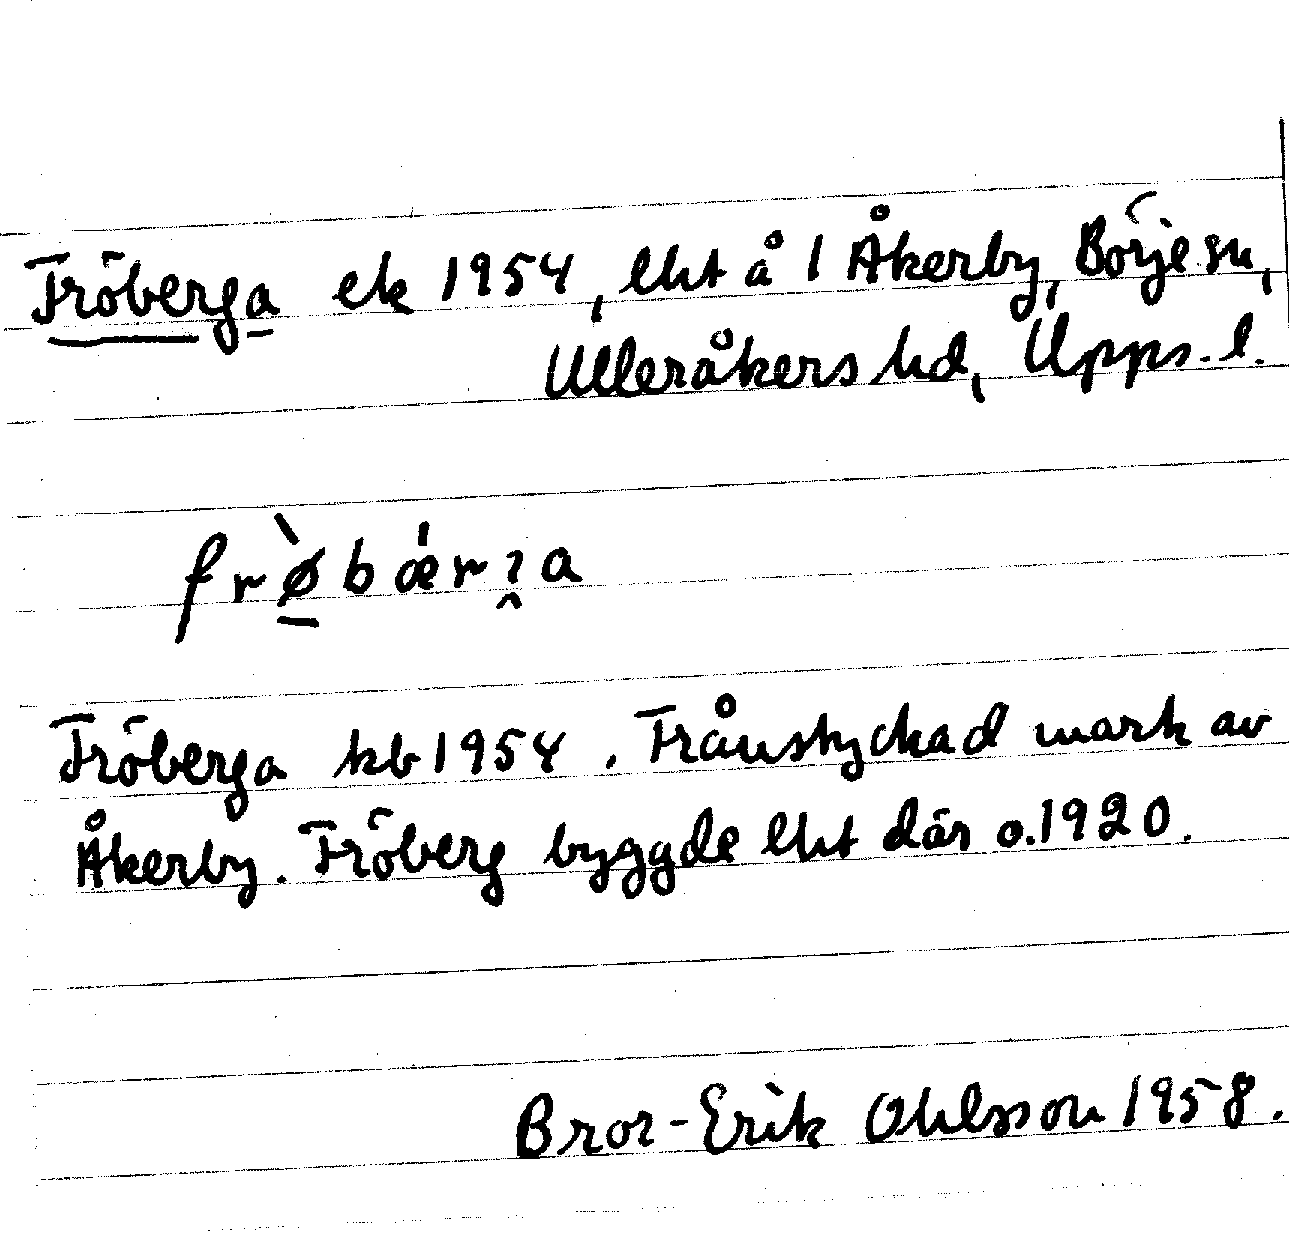 Fröberga ek 1954, lht å 1 Åkerby, Börje sn,
Ulleråkers hd, Upps. l.
frø̀bǽrɂa
Fröberga kb 1954. Frånstyckad mark av
Åkerby. Fröberg byggde lht där o. 1920.
Bror-Erik Ohlsson 1958.